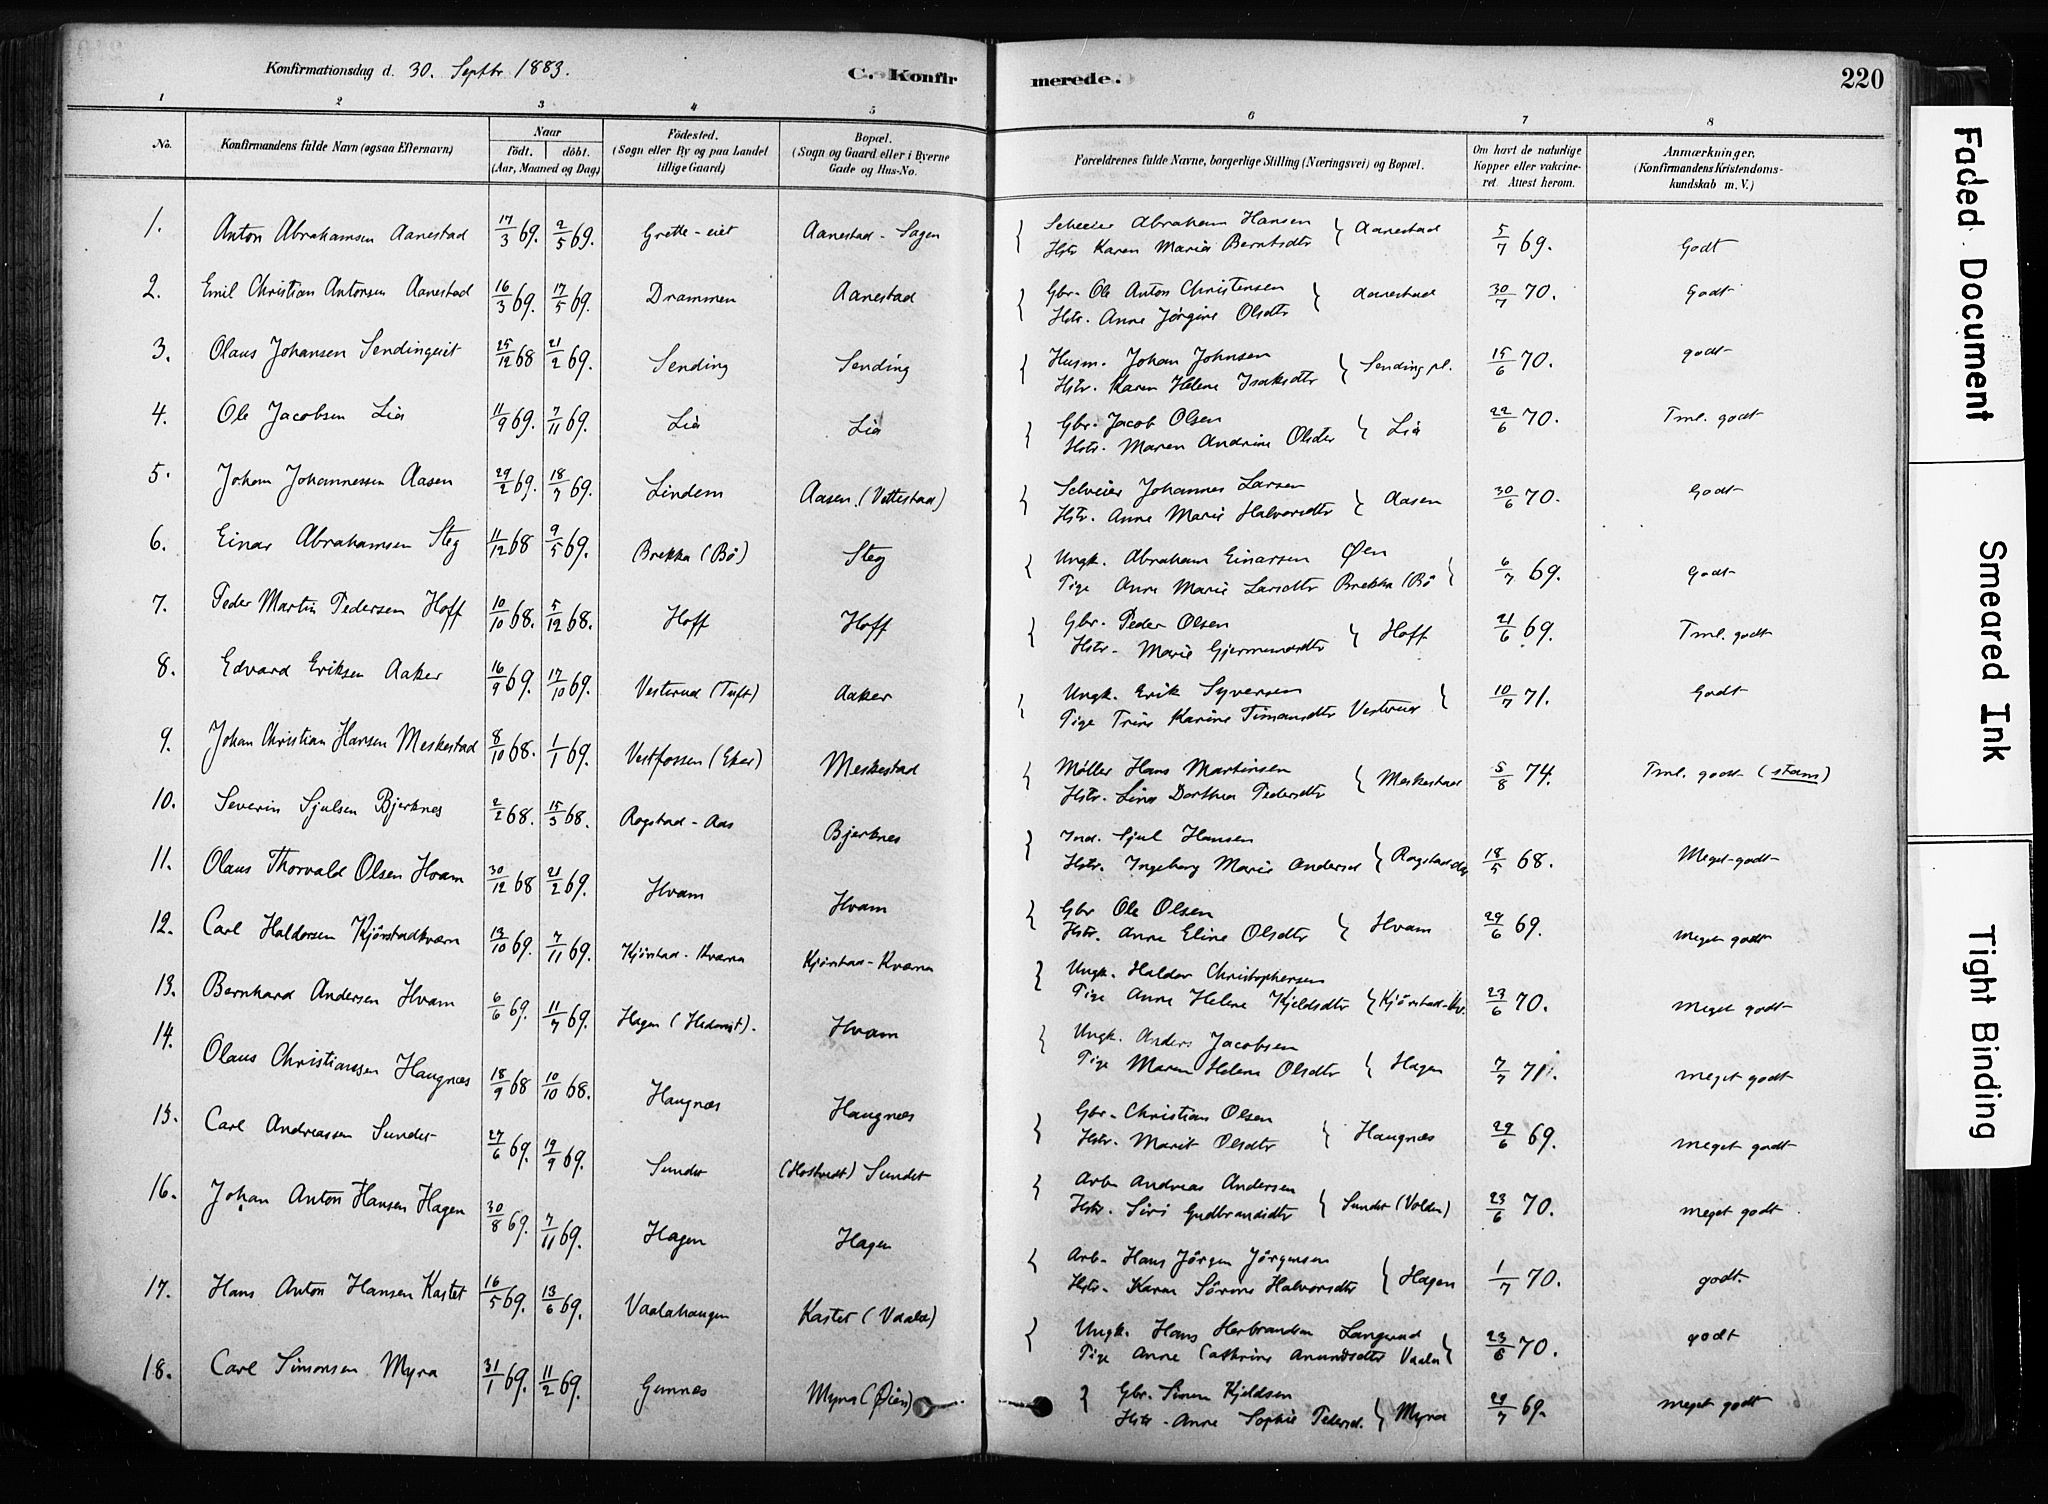 Konfirmationsdag d. 30. Septbr. 1883.
C. Konfirmerede.
220
1 2 3 4 5 6 7 8
No.
Konfirmandens fulde Navn (ogsaa Efternavn)
Naar
födt. döbt.
(Aar, Maaned og Dag)
Födested.
(Sogn eller By og paa Landet
tillige Gaard)
Bopæl.
(Sogn og Gaard eller i Byerne
Gade og Hus-No.
Forældrenes fulde Navne, borgerlige Stilling (Næringsvei) og Bopæl.
Om havt de naturlige
Kopper eller vakcine-
ret. Attest herom.
Anmærkninger,
(Konfirmandens Kristendoms-
kundskab m. V.)
1. Anton Abrahamsen Aanestad 17/3 69. 2/5 69. Grette-eiet Aanestad - Sagen
Selveier Abraham Hansen
Hstr. Karen Maria Berntsdtr } Aanestad 5/7 69. Godt
2. Emil Christian Antonsen Aanestad 16/3 69. 17/5 69. Drammen Aanestad
Gbr. Ole Anton Christensen
Hstr. Anne Jørgine Olsdtr } Aanestad 30/7 70. Godt
3. Olaus Johansen Sendingeiet 25/12 68 21/2 69. Sending Sending
Husm. Johan Johnsen
Hstr. Karen Helene Isaksdtr } Sending pl. 15/6 70. godt
4. Ole Jacobsen Lia 11/9 69. 7/11 69. Lia Lia
Gbr. Jacob Olsen
Hstr. Maren Andrine Olsdtr } Lia 22/6 70. Tml. godt
5. Johan Johannessen Aasen 29/2 69. 18/7 69. Lindem Aasen (Vettestad)
Selveier Johannes Larsen
Hstr. Anne Marie Halvorsdtr } Aasen 30/6 70. Godt
6. Einar Abrahamsen Steg 11/12 68 9/5 69. Brekka (Bö) Steg
Ungk. Abraham Einarsen Øen
Pige Anne Marie Larsdtr Brekka (Bö } 6/7 69. Godt
7. Peder Martin Pedersen Hoff 10/10 68. 5/12 68. Hoff Hoff
Gbr. Peder Olsen
Hstr. Marie Gjermundsdtr } Hoff 21/6 69. Tml. godt
8. Edvard Eriksen Aaker 16/9 69. 17/10 69. Vesterud (Tuft) Aaker
Ungk. Erik Syversen
Pige Trine Karine Timansdtr } 10/7 71. Godt
9. Johan Christian Hansen Meskestad 8/10 68. 1/1 69. Vestfossen (Eker) Meskestad
Møller Hans Martinsen
Hstr. Lina Dorthea Pedersdtr } Meskestad 5/8 74. Tml. godt (stam)
10. Severin Sjulsen Bjerknes 2/2 68. 15/3 68. Rogstad-Aas Bjerknes
Ind. Sjul Hansen
Hstr. Ingeborg Marie Andersd } 18/5 68. Meget godt
11. Olaus Thorvald Olsen Hvam 30/12 68 21/2 69. Hvam Hvam
Gbr Ole Olsen
Hstr. Anne Eline Olsdtr } Hvam 29/6 69. meget godt
12. Carl Haldorsen Kjörstadkværn 13/10 69. 7/11 69. Kjörstad-Kværna Kjörstad-Kværna
Ungk. Haldor Christophersen
Pige Anne Helene Kjeldsdtr } Kjörstad-Kv. 23/6 70. Meget godt
13. Bernhard Andersen Hvam 6/6 69. 11/7 69. Hagen Hvam
Ungk. Anders Jacobsen
Pige Maren Helene Olsdtr } Hagen 7/7 71. meget godt
14. Olaus Christiansen Haugnæs 18/9 68 10/10 68. Haugnæs Haugnæs
Gbr. Christian Olsen
Hstr. Marit Olsdtr } Haugnæs 29/6 69. meget godt
15. Carl Andreassen Sundet 27/6 69. 19/9 69. Sundet (Hostvedt) Sundet
Arb. Andreas Andersen
Hstr. Siri Gudbrandsdtr } Sundet (Volden) 23/6 70. meget godt
16. Johan Anton Hansen Hagen 30/8 69. 7/11 69. Hagen Hagen
Arb. Hans Jörgen Jörgensen
Hstr. Karen Sörine Halvorsdtr } Hagen 1/7 70. godt.
17. Hans Anton Hansen Kastet 16/5 69. 13/6 69. Vaalahaugen Kastet (Vaala)
Ungk. Hans Herbrandsen Langerud
Pige Anne Cathrine Amundsdtr Vaala } 23/6 70. godt
18. Carl Simonsen Myra 31/1 69. 11/2 69. Gunnes Myra (Öien)
Gbr. Simen Kjeldsen
Hstr. Anne Sophie Pedersd. } Myra 29/7 69. meget godt
Faded Document
Smeared Ink
Tight Binding